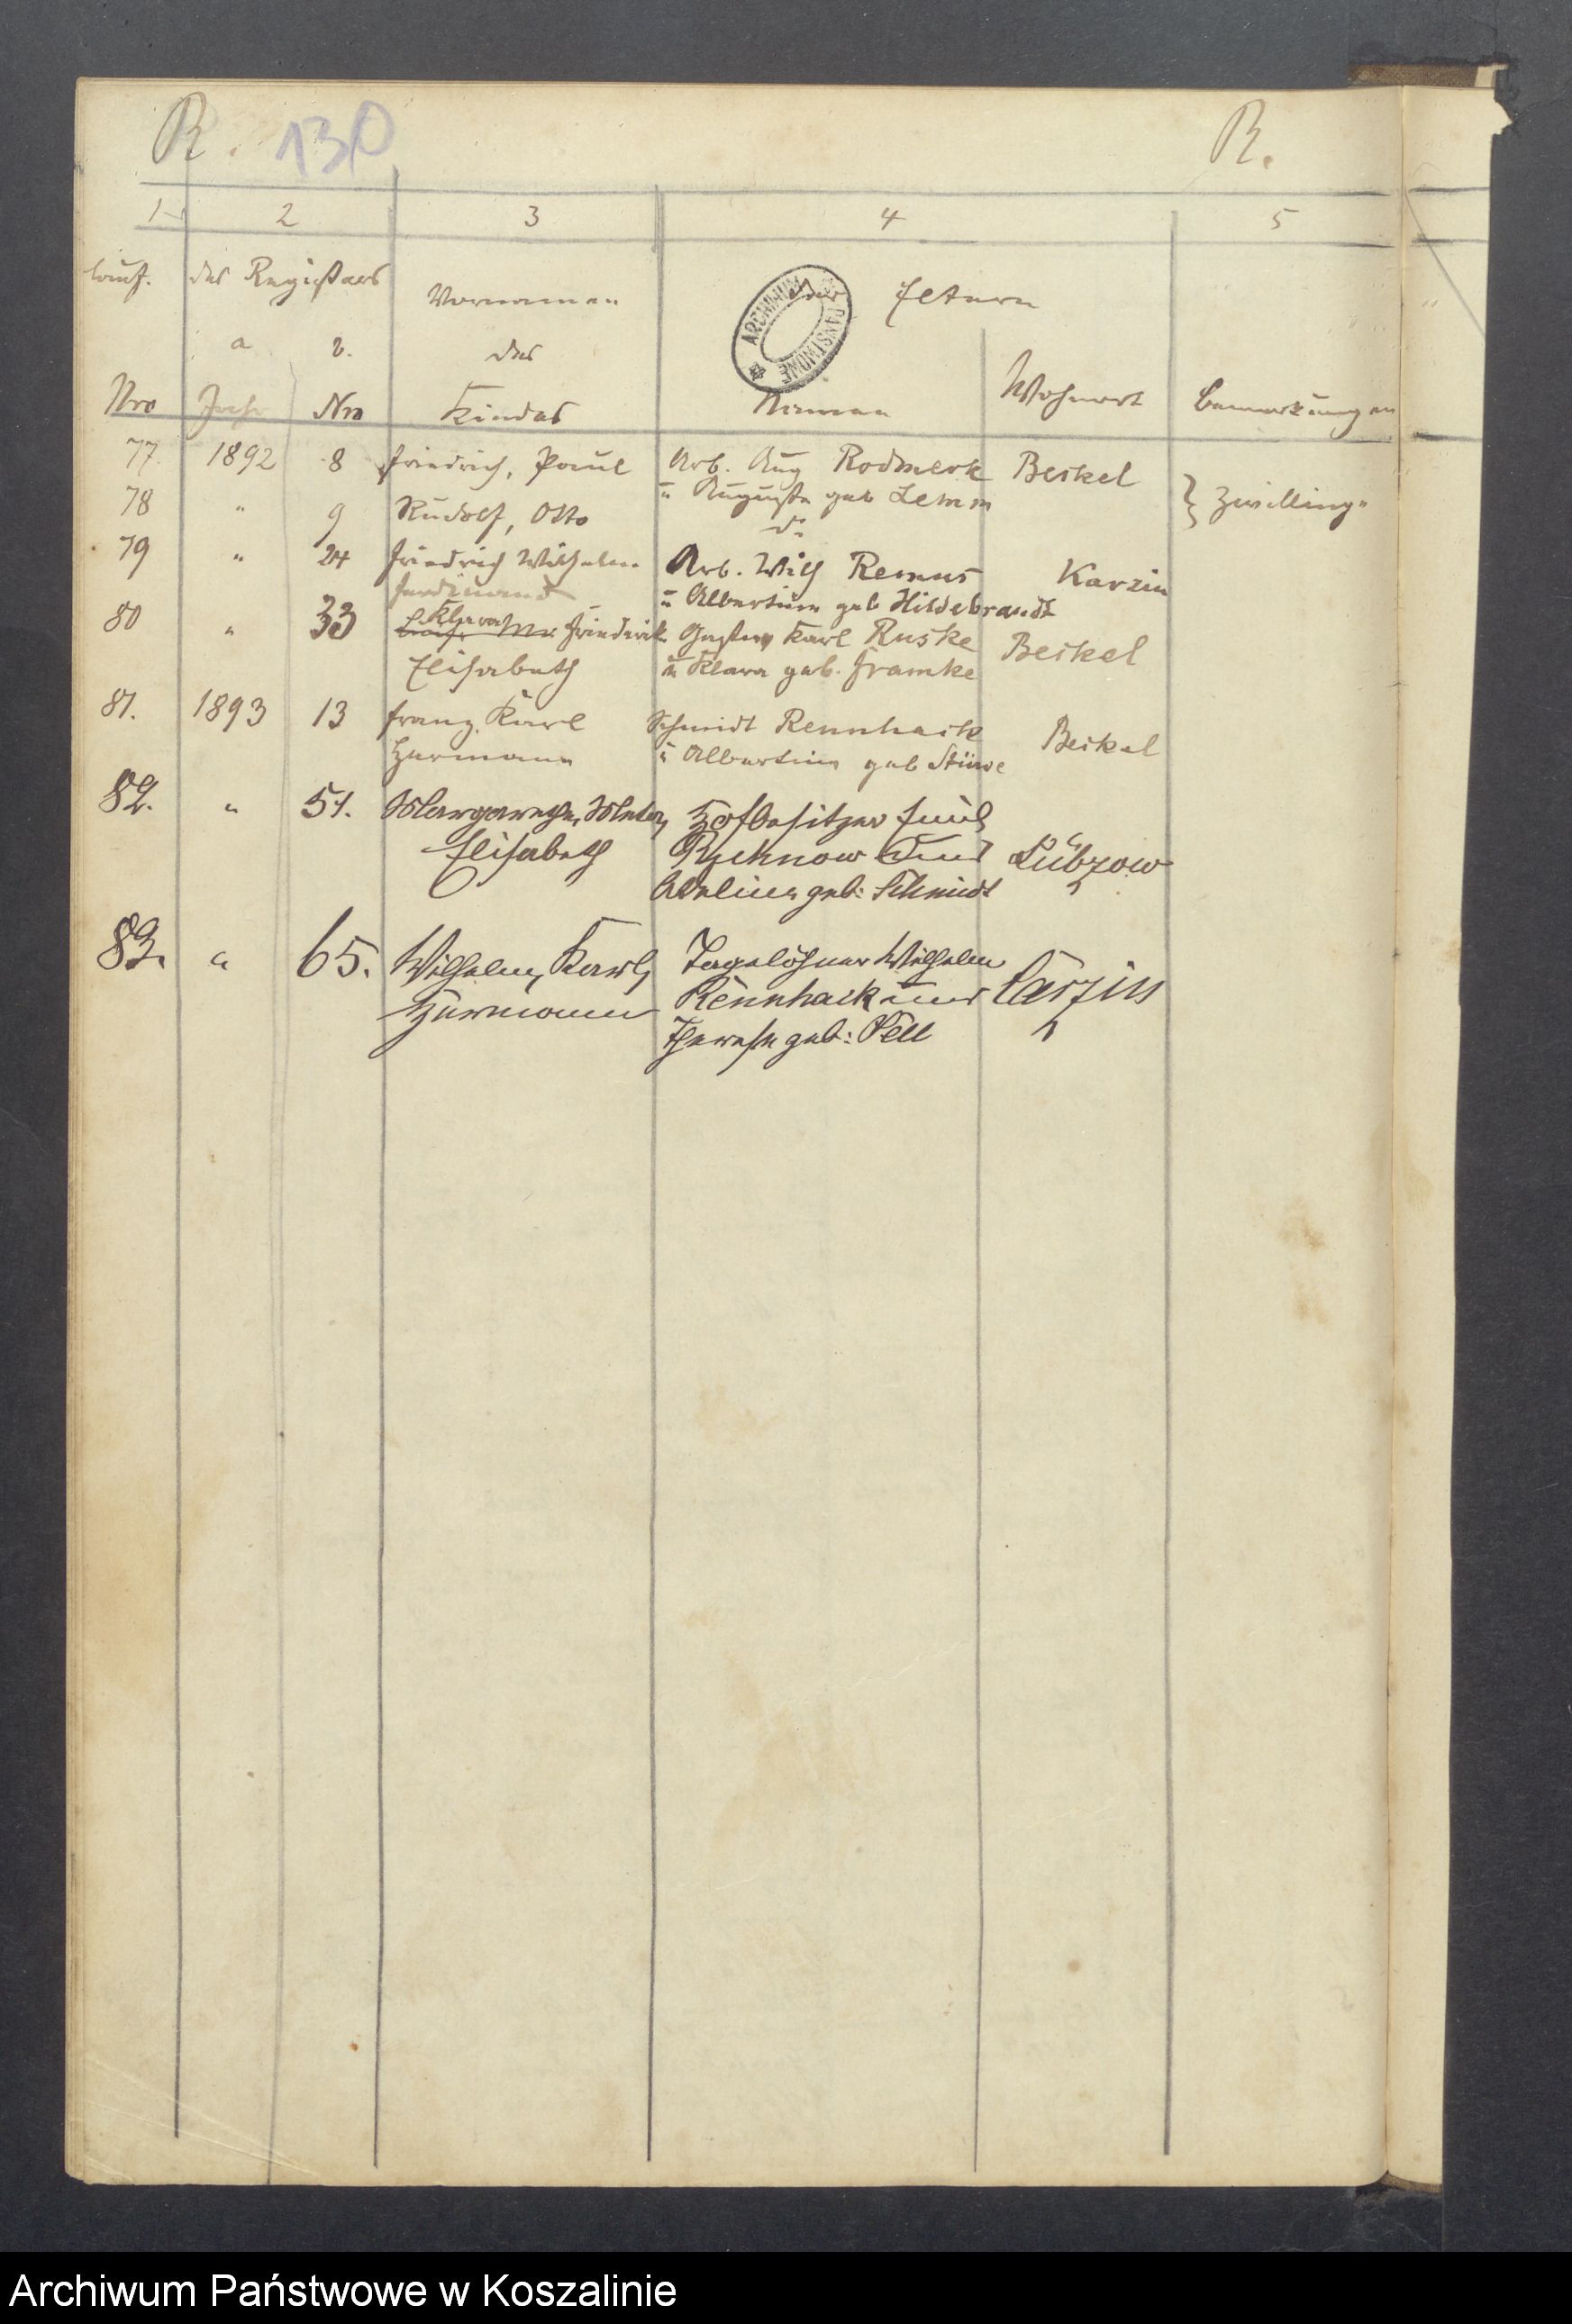 R. 130 R.
1 2 3 4 5
lauf. des Registers Vornamen der Eltern
a b. des
Nro Jahr Nro Kindes Namen Wohnort Bemerkungen
ARCHIWUM PAŃSTWOWE
77. 1892 8 Friedrich, Paul Arb. Aug Rodmerk Beskel
u Auguste geb Lemm
78 " 9 Rudolf, Otto do } Zwillinge
79 " 24 Friedrich Wilhelm Arb. Wilh Remus Karzin
Ferdinand u Albertine geb Hildebrandt
80 " 33 Klara Friederike Gustav Karl Ruske Beskel
Elisabeth u Klara geb. Framke
81. 1893 13 Franz Karl Schmidt Rennhack Beskel
Hermann u Albertine geb Stüwe
82. " 51. Margarethe, Meta, Hofbesitzer Emil
Elisabeth Rychnow und Lübzow
Adeline geb: Schmidt
83. " 65. Wilhelm, Karl, Tagelöhner Wilhelm
Hermann Rennhack und Carzin
Therese geb: Pell
Archiwum Państwowe w Koszalinie